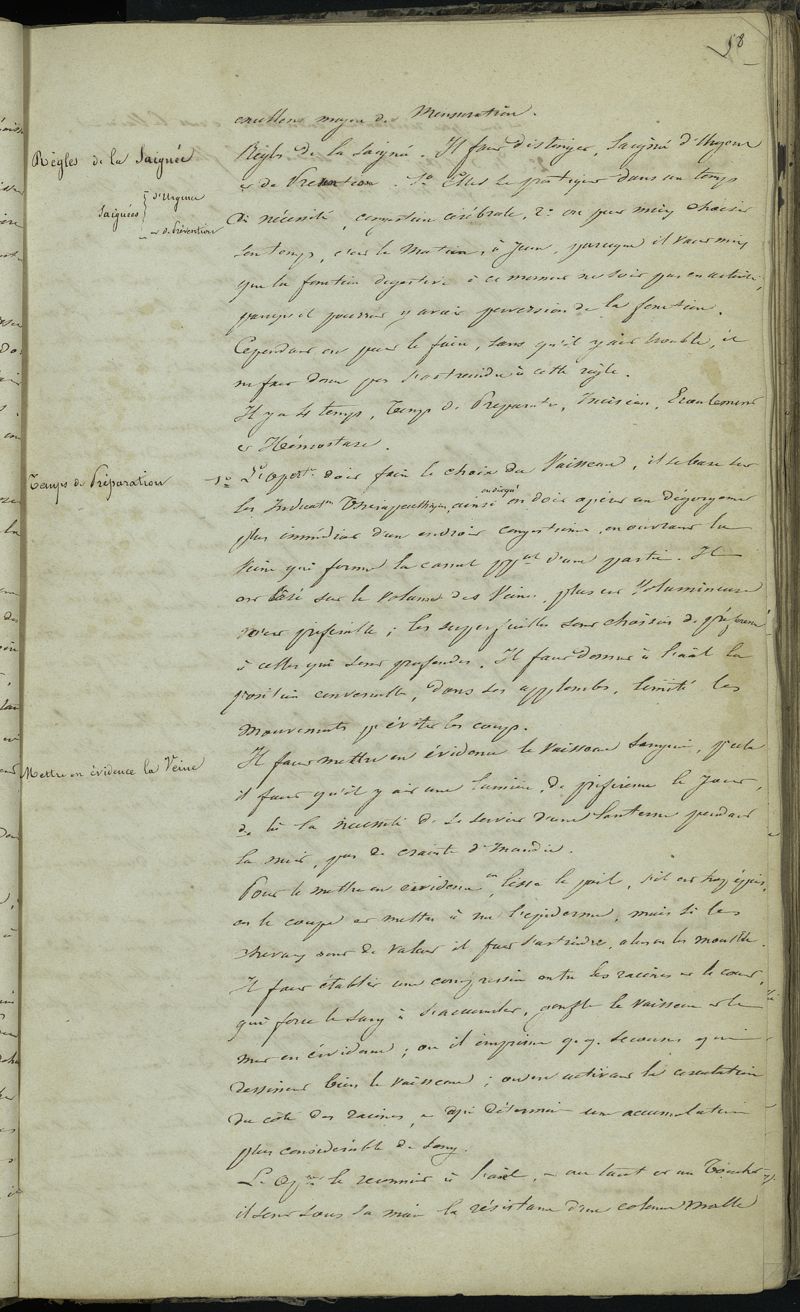 58
excellens moyen de Mensuration.
Règles de la Saignée
Règls de la Saigné. Il faut distinguer, Saigné d'Urgence
Saignées { d'Urgence
et de Prévention
et de Prévention. 1o Elles se pratiquer dans un temps
de nécessité, congestion cérébrale, 2o on peut mieux choisir
son temps, c'est le Matin, à Jeun, parceque il vaut mieux
que la fonction digestive à ce moment ne soit pas en activité,
parcequ'il pourrait y avoir perversion de la fonction.
Cependant on peut le faire, sans qu'il y ait trouble, il
ne faut donc pas s'astreindre à cette règle.
Il y a 4 temps, Temps de Préparation, Incision, Ecoulement
et Hémostase.
Temps de Préparation
1o L'Opért. doit faire le choix du Vaisseau, il se base sur
les Indicatn Thérapeuthiques, ainsi on doit opérer un Dégorgement
plus immédiat d'un endroit congestionné, en ouvrant la
Veine qui forme le canal ppal d'une partie. Il
est basé sur le volume des Veines, plus est Volumineuse
préférable; les superficielles sont choisies de préférence
à celles qui sont profondes. Il faut donner à l'anal la
position convenable, dans ses applombs, limité les
Mouvements pr éviter les coups.
Mettre en évidence la Veine
Il faut mettre en évidence le vaisseau Sanguin, pr cela
il faut qu'il y ait une lumière, de préférence le Jour,
de là la nécessité de se servir d'une lanterne pendant
la nuit, pas de crainte d'Incendie.
Pour le mettre en évidence on lisse le poil, s'il est trop épais,
on le coupe et mettre à nu l'épiderme, mais si les
chevaux sont de valeur il faut s'astreindre, alors on les mouille.
Il faut établir une compression entre les racines et le coeur,
qui force le sang à s'accumuler, gonfle le vaisseau et le
met en évidence; ou il imprime q.q. secousses qui
dessinent bien le vaisseau; ou en activant la circulation
du côté des racines, ce qui détermine une accumulation
plus considérable de Sang.
L'Opr le reconnait à l'oeil, et au tact et au Toucher
il sent sous sa main la résistance d'une colonne Molle